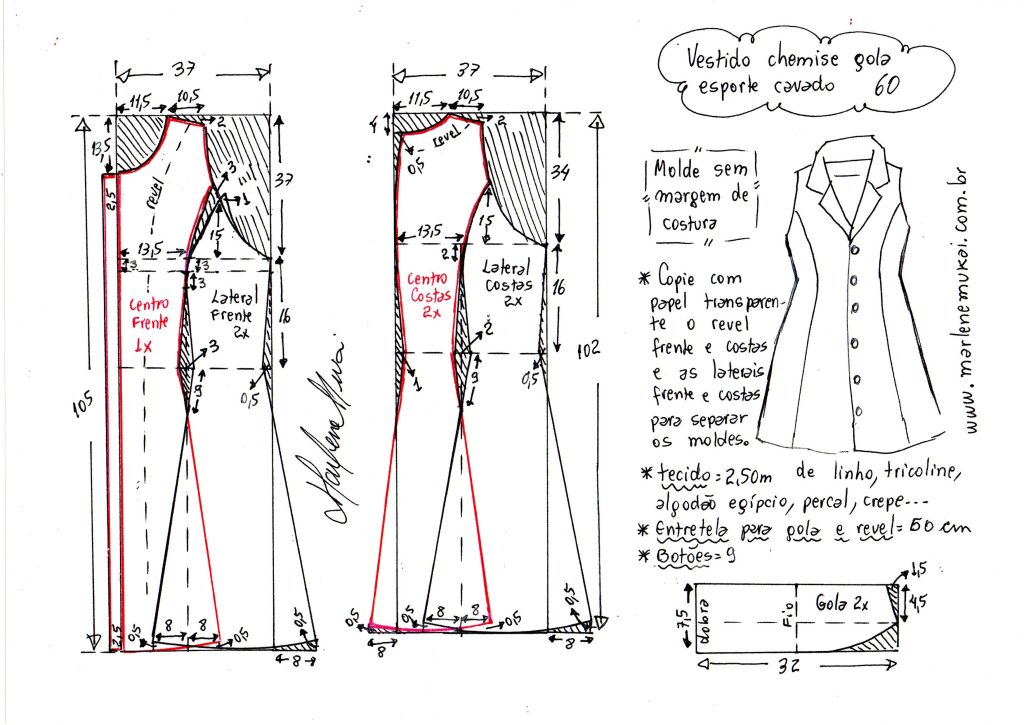 Vestido chemise gola
esporte cavado 60
Molde sem
margem de
costura
* Copie com
papel transparen-
te o revel
frente e costas
e as laterais
frente e costas
para separar
os moldes.
* tecido = 2,50m de linho, tricoline,
algodão egípcio, percal, crepe...
* Entretela para gola e revel = 60 cm
* Botões = 9
www.marlenemukai.com.br
37
11,5 10,5
2
13,5
2,5
revel
3
1
37
15
13,5
3 3
3
Centro
Frente
1x
Lateral
Frente
2x
16
3
9
0,5
105
2,5
0,5
8 8
0,5
0,5
8
37
11,5 10,5
4
2
revel
0,5
34
15
13,5
2
Centro
Costas
2x
Lateral
Costas
2x
16
2
1
9
0,5
102
0,5
8 8
0,5
0,5
8 8
1,5
7,5
dobra
Fio
Gola 2x
4,5
32